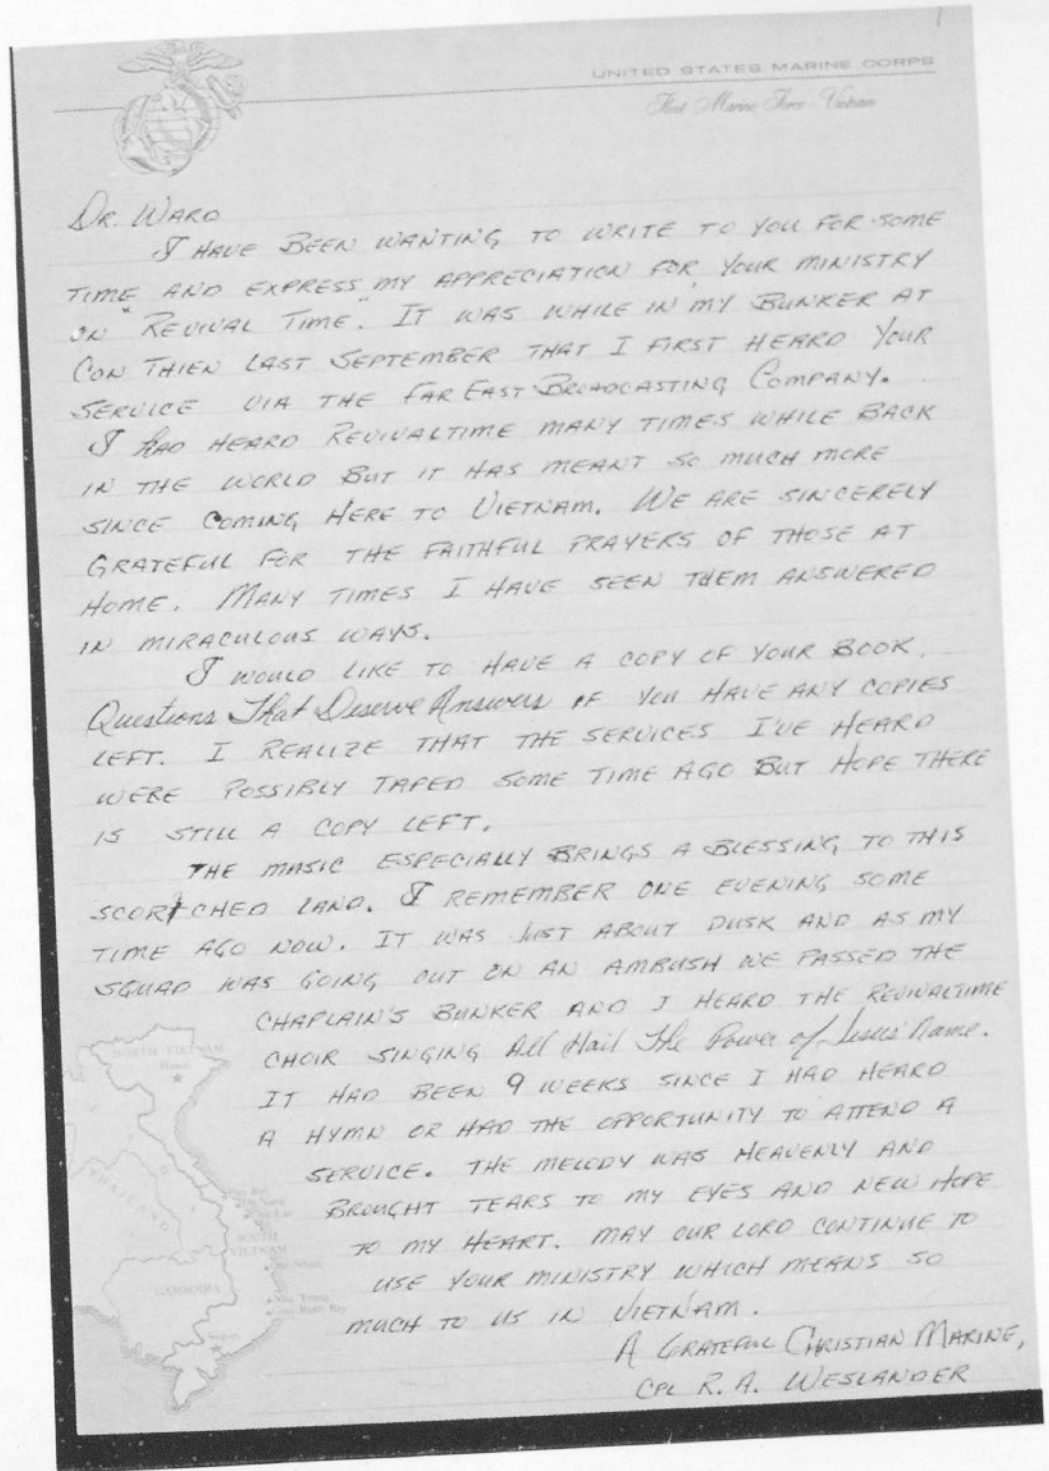 UNITED STATES MARINE CORPS
Fleet Marine Force - Vietnam
DR. WARD
I HAVE BEEN WANTING TO WRITE TO YOU FOR SOME
TIME AND EXPRESS MY APPRECIATION FOR YOUR MINISTRY
ON "REVIVAL TIME." IT WAS WHILE IN MY BUNKER AT
CON THIEN LAST SEPTEMBER THAT I FIRST HEARD YOUR
SERVICE VIA THE FAR EAST BROADCASTING COMPANY.
I HAD HEARD REVIVALTIME MANY TIMES WHILE BACK
IN THE WORLD BUT IT HAS MEANT SO MUCH MORE
SINCE COMING HERE TO VIETNAM. WE ARE SINCERELY
GRATEFUL FOR THE FAITHFUL PRAYERS OF THOSE AT
HOME. MANY TIMES I HAVE SEEN THEM ANSWERED
IN MIRACULOUS WAYS.
I WOULD LIKE TO HAVE A COPY OF YOUR BOOK,
Questions That Deserve Answers IF YOU HAVE ANY COPIES
LEFT. I REALIZE THAT THE SERVICES I'VE HEARD
WERE POSSIBLY TAPED SOME TIME AGO BUT HOPE THERE
IS STILL A COPY LEFT.
THE MUSIC ESPECIALLY BRINGS A BLESSING TO THIS
SCORCHED LAND. I REMEMBER ONE EVENING SOME
TIME AGO NOW. IT WAS JUST ABOUT DUSK AND AS MY
SQUAD WAS GOING OUT ON AN AMBUSH WE PASSED THE
CHAPLAIN'S BUNKER AND I HEARD THE REVIVALTIME
CHOIR SINGING All Hail The Power of Jesus' Name.
IT HAD BEEN 9 WEEKS SINCE I HAD HEARD
A HYMN OR HAD THE OPPORTUNITY TO ATTEND A
SERVICE. THE MELODY WAS HEAVENLY AND
BROUGHT TEARS TO MY EYES AND NEW HOPE
TO MY HEART. MAY OUR LORD CONTINUE TO
USE YOUR MINISTRY WHICH MEANS SO
MUCH TO US IN VIETNAM.
A GRATEFUL CHRISTIAN MARINE,
CPL R. A. WESLANDER
NORTH VIETNAM
Hanoi
THAILAND
SOUTH
VIETNAM
CAMBODIA
Nha Trang
Cam Ranh Bay